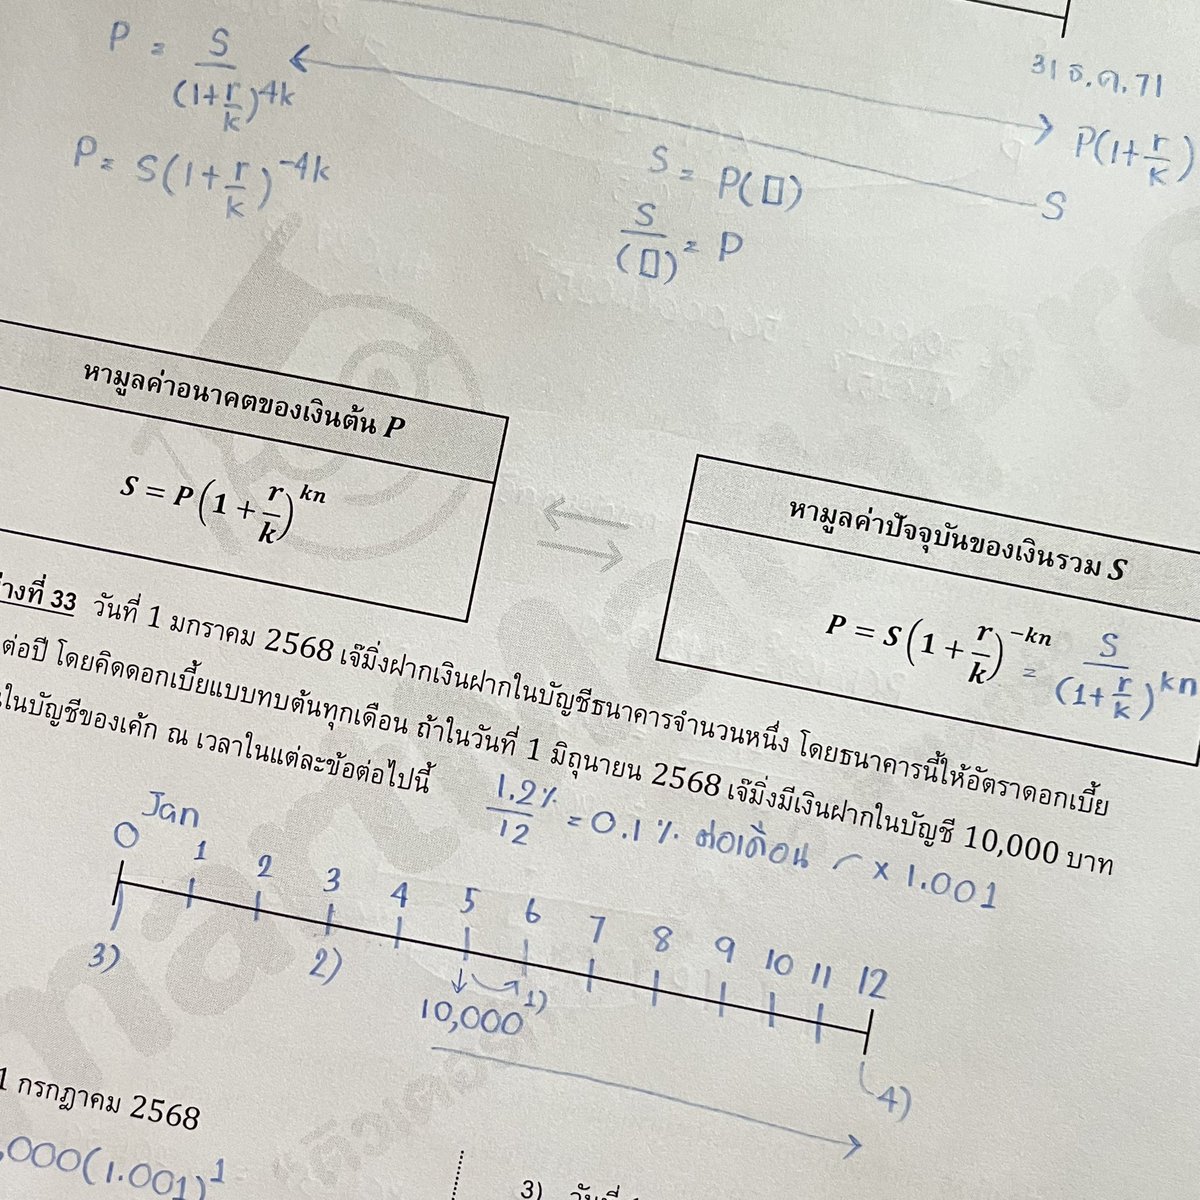 P = S/(1+r/k)^4k
31 ธ.ค. 71
P(1+r/k)
P = S(1+r/k)^-4k
S = P(□)
S
S/(□) = P
หามูลค่าอนาคตของเงินต้น P
S = P(1 + r/k)^kn
หามูลค่าปัจจุบันของเงินรวม S
P = S(1 + r/k)^-kn = S/(1+r/k)^kn
างที่ 33 วันที่ 1 มกราคม 2568 เจ๊มิ่งฝากเงินฝากในบัญชีธนาคารจำนวนหนึ่ง โดยธนาคารนี้ให้อัตราดอกเบี้ย
ต่อปี โดยคิดดอกเบี้ยแบบทบต้นทุกเดือน ถ้าในวันที่ 1 มิถุนายน 2568 เจ๊มิ่งมีเงินฝากในบัญชี 10,000 บาท
ในบัญชีของเค้ก ณ เวลาในแต่ละข้อต่อไปนี้
1.2%/12 = 0.1 % ต่อเดือน × 1.001
Jan
0 1 2 3 4 5 6 7 8 9 10 11 12
3) 2) 1) 4)
10,000
1 กรกฎาคม 2568
,000(1.001)^1
3) วันที่